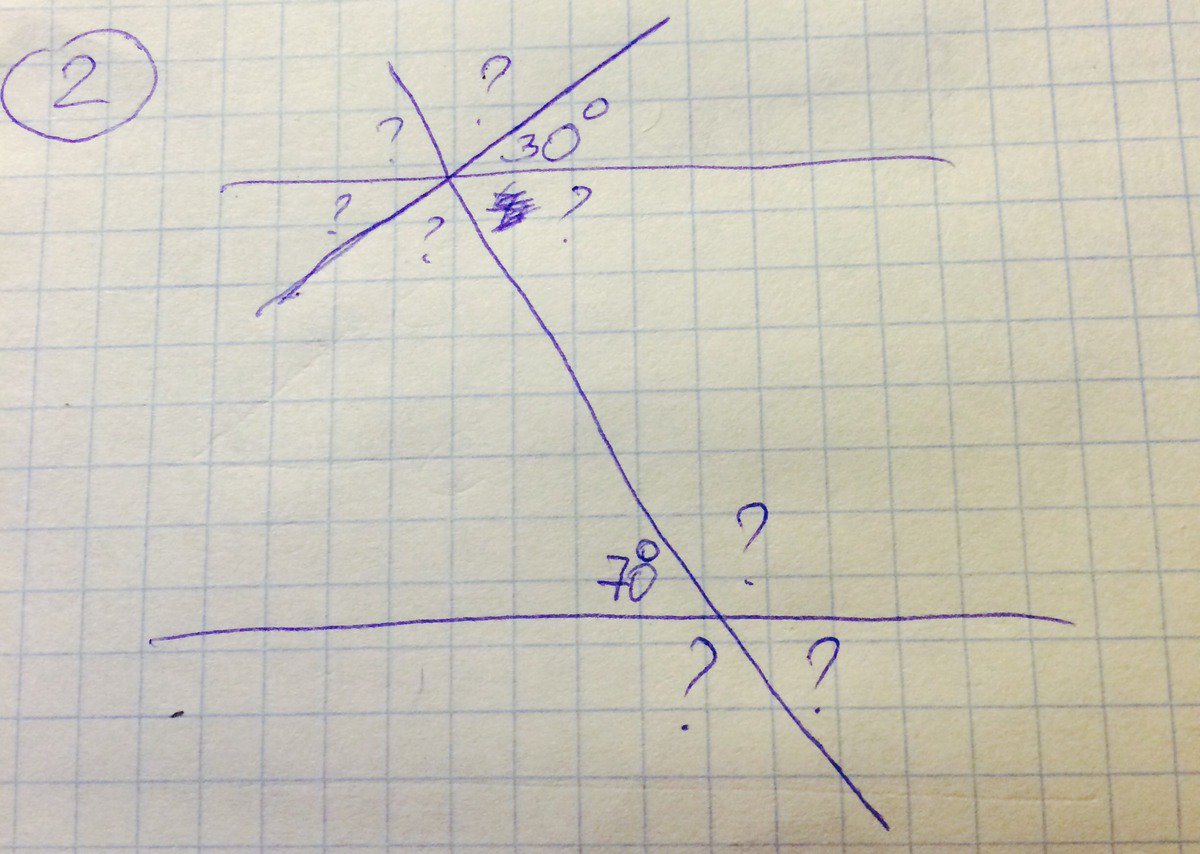 2
?
?
30°
?
?
?
70°
?
?
?